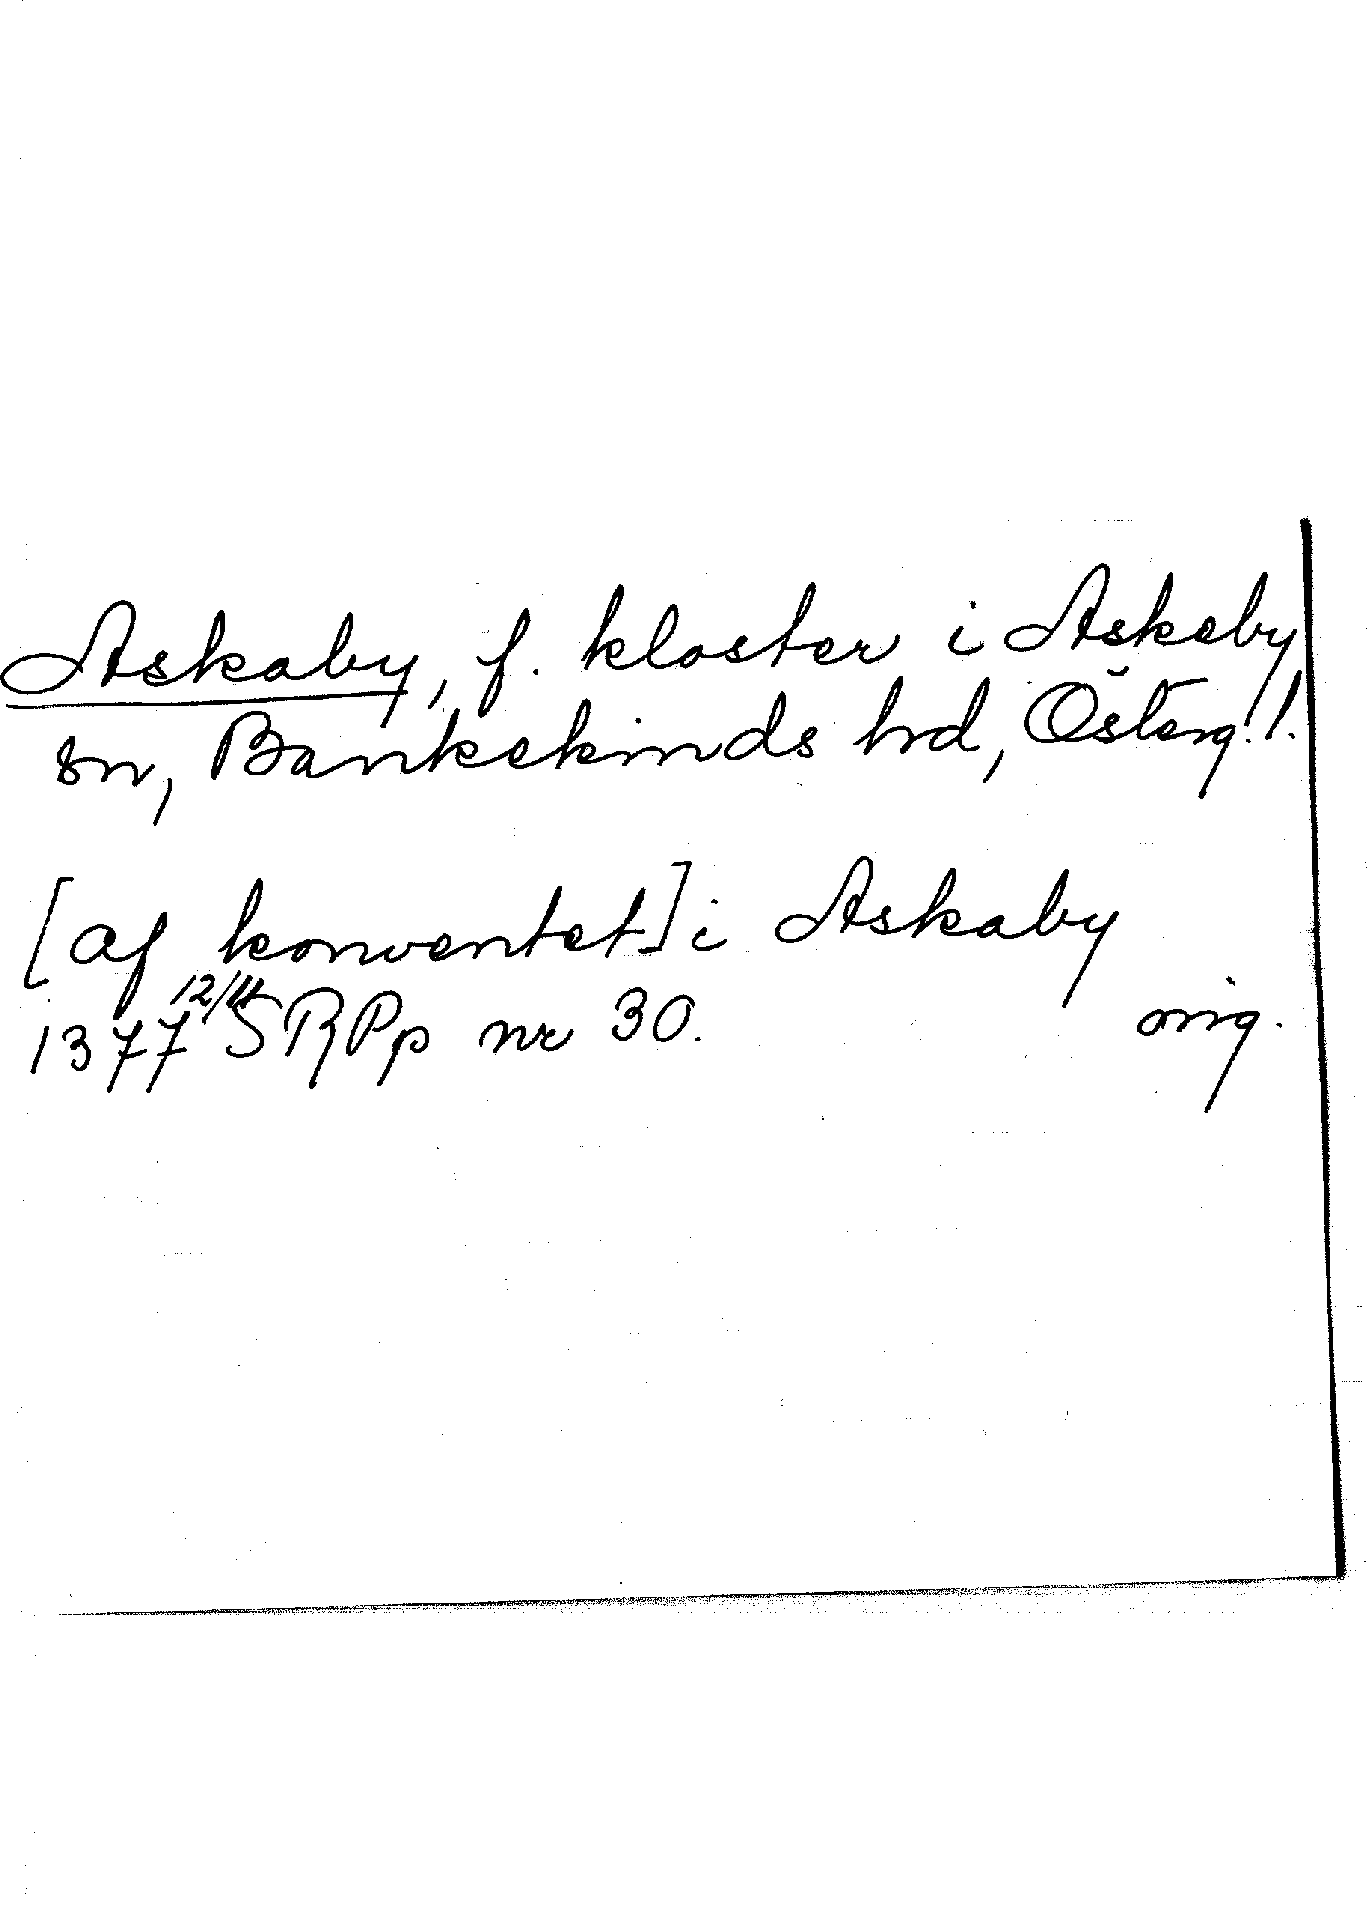 Askaby, f. kloster i Askeby
sn, Bankekinds hrd, Österg.l.
[af konventet] i Askaby
1377 12/4 SRPp nr 30. orig.